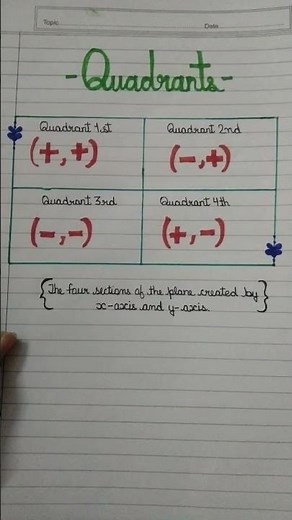 Topic
Date
-Quadrants-
Quadrant 1st
Quadrant 2nd
(+,+)
(-,+)
Quadrant 3rd
Quadrant 4th
(-,-)
(+,-)
{The four sections of the plane created by
x-axis and y-axis.}